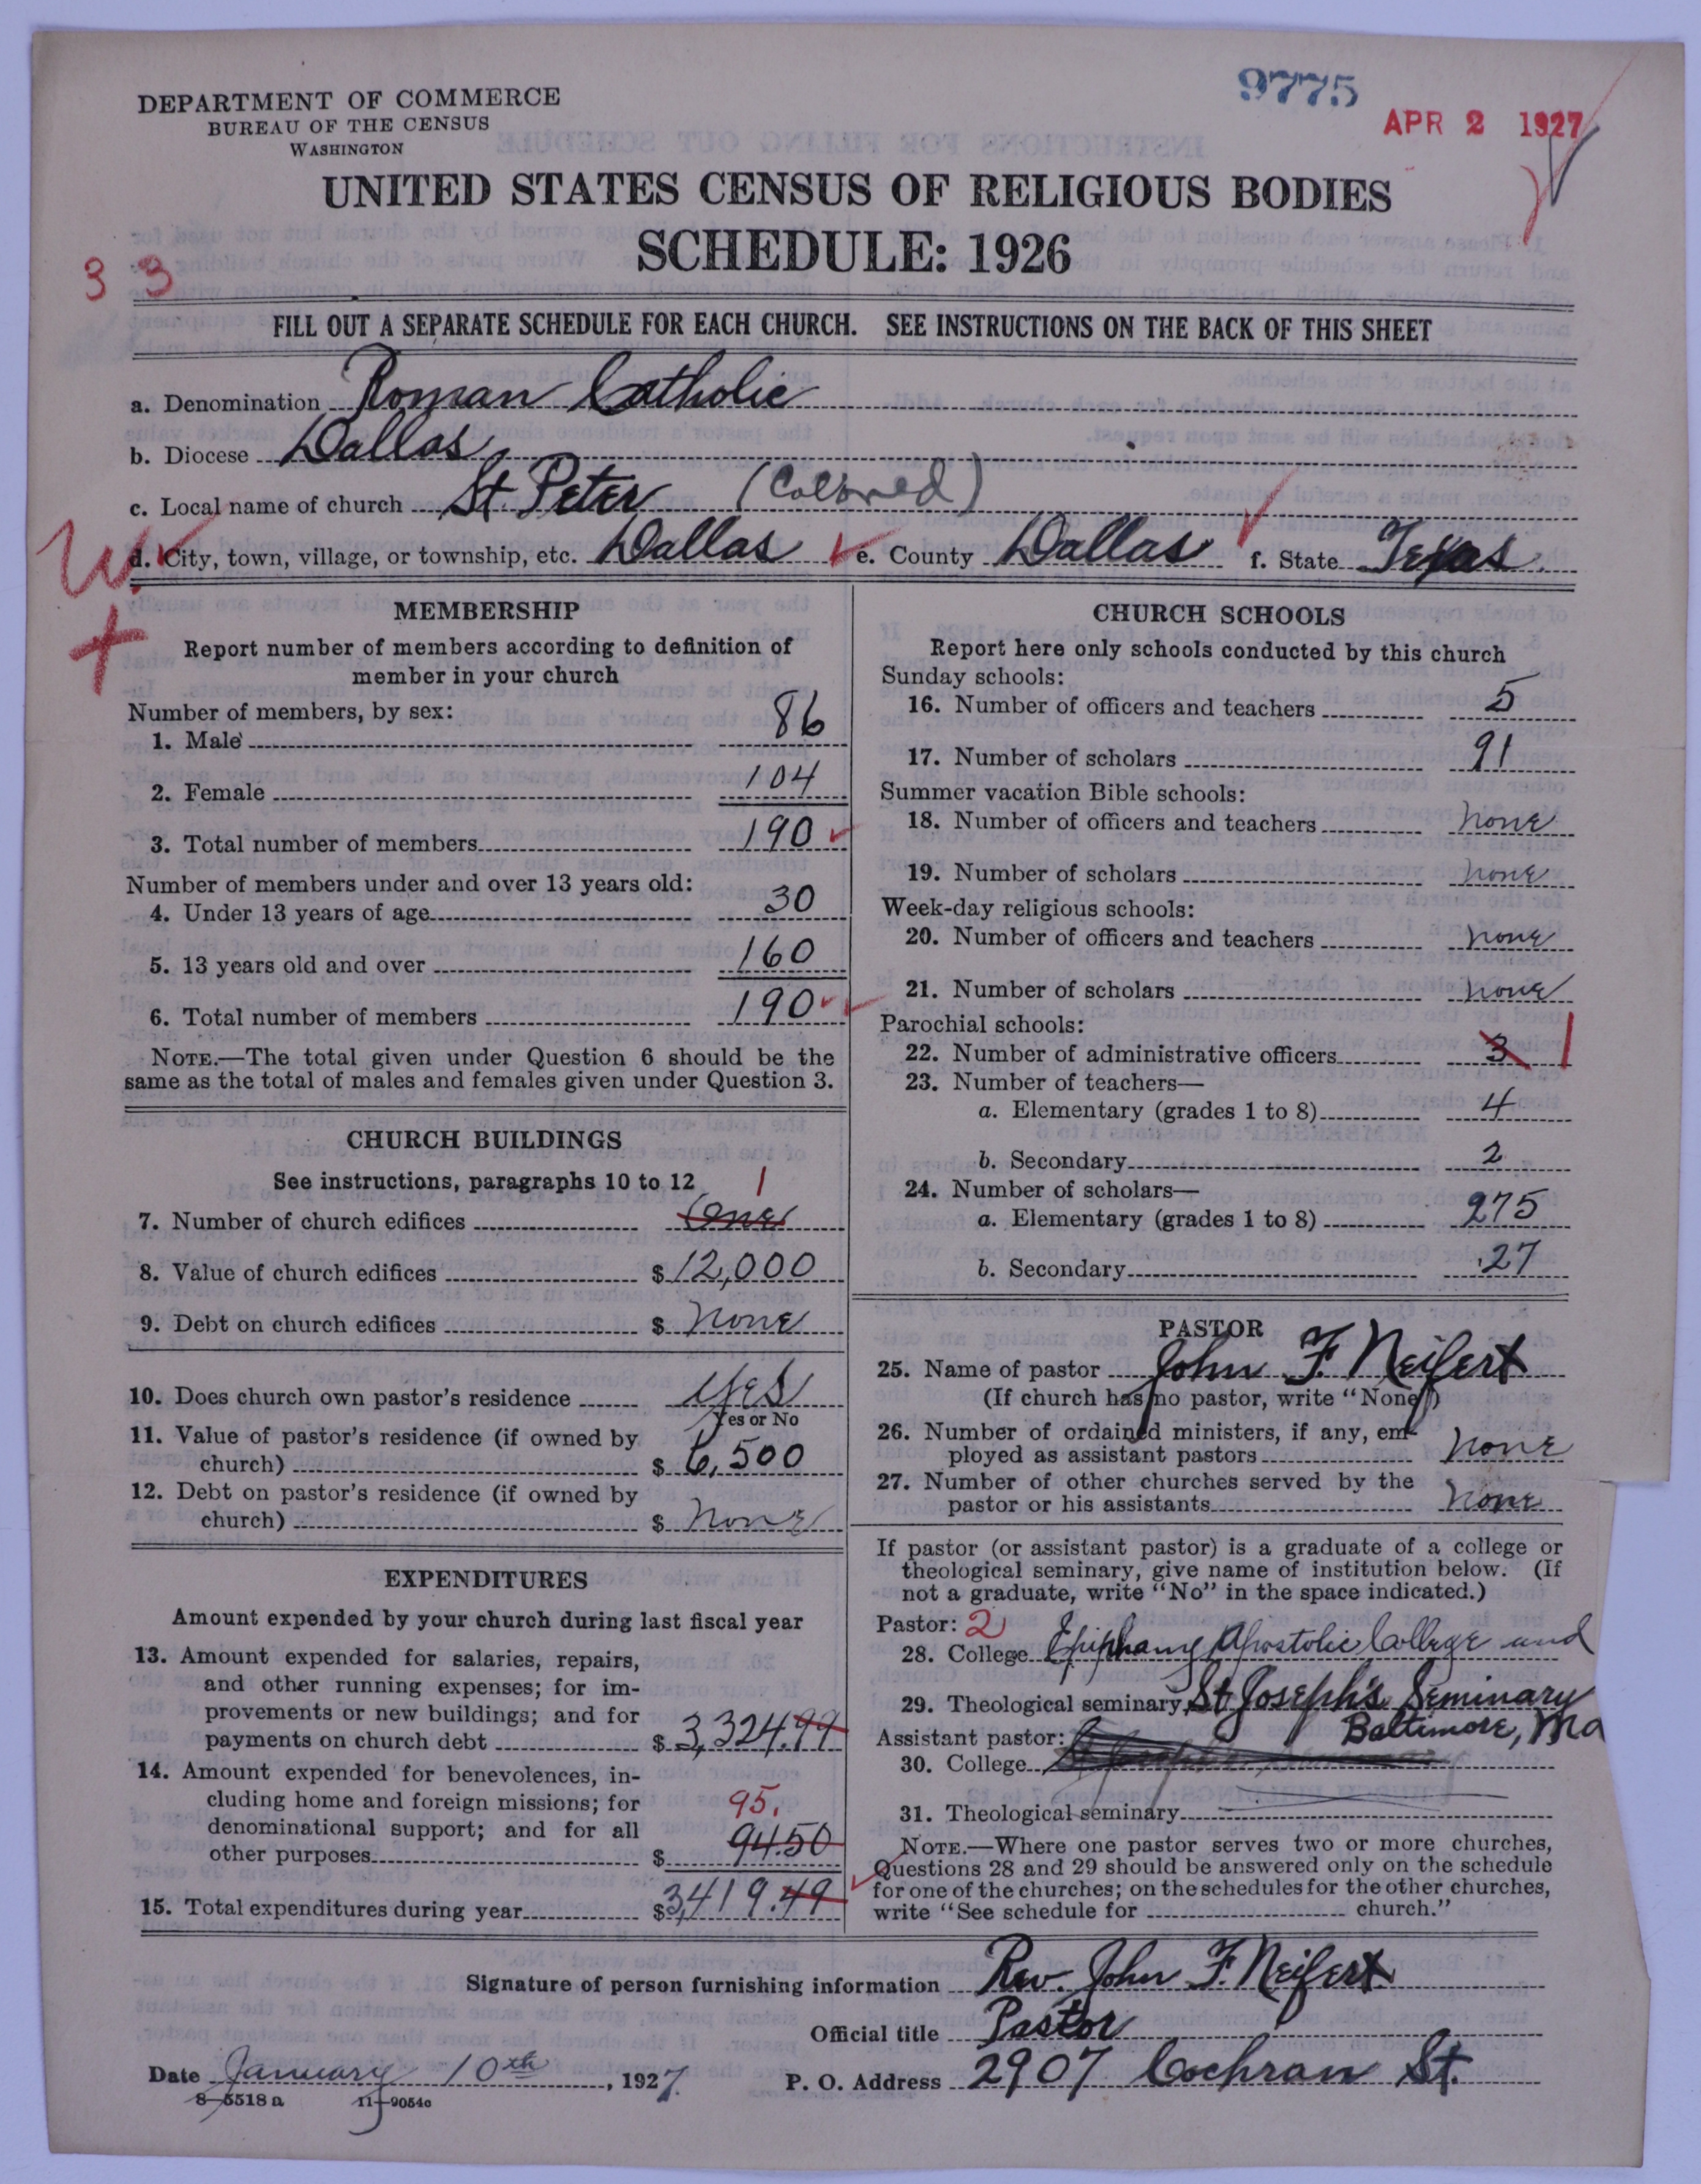 DEPARTMENT OF COMMERCE
BUREAU OF THE CENSUS
WASHINGTON
9775
APR 2 1927
UNITED STATES CENSUS OF RELIGIOUS BODIES
SCHEDULE: 1926
3 3
FILL OUT A SEPARATE SCHEDULE FOR EACH CHURCH. SEE INSTRUCTIONS ON THE BACK OF THIS SHEET
a. Denomination Roman Catholic
b. Diocese Dallas
c. Local name of church St. Peter (Colored)
d. City, town, village, or township, etc. Dallas e. County Dallas f. State Texas.
W
MEMBERSHIP
Report number of members according to definition of
member in your church
Number of members, by sex:
1. Male 86
2. Female 104
3. Total number of members 190
Number of members under and over 13 years old:
4. Under 13 years of age 30
5. 13 years old and over 160
6. Total number of members 190
NOTE.—The total given under Question 6 should be the
same as the total of males and females given under Question 3.
CHURCH BUILDINGS
See instructions, paragraphs 10 to 12
1
7. Number of church edifices One
8. Value of church edifices $ 12,000
9. Debt on church edifices $ None
10. Does church own pastor's residence Yes
Yes or No
11. Value of pastor's residence (if owned by
church) $ 6,500
12. Debt on pastor's residence (if owned by
church) $ None
EXPENDITURES
Amount expended by your church during last fiscal year
13. Amount expended for salaries, repairs,
and other running expenses; for im-
provements or new buildings; and for
payments on church debt $ 3,324.99
14. Amount expended for benevolences, in-
cluding home and foreign missions; for
95.
denominational support; and for all
other purposes $ 94.50
15. Total expenditures during year $3,419.49
CHURCH SCHOOLS
Report here only schools conducted by this church
Sunday schools:
16. Number of officers and teachers 5
17. Number of scholars 91
Summer vacation Bible schools:
18. Number of officers and teachers None
19. Number of scholars None
Week-day religious schools:
20. Number of officers and teachers None
21. Number of scholars None
Parochial schools:
22. Number of administrative officers 3 1
23. Number of teachers—
a. Elementary (grades 1 to 8) 4
b. Secondary 2
24. Number of scholars—
a. Elementary (grades 1 to 8) 275
b. Secondary 27
PASTOR
25. Name of pastor John F. Neifert
(If church has no pastor, write "None")
26. Number of ordained ministers, if any, em-
ployed as assistant pastors None
27. Number of other churches served by the
pastor or his assistants None
If pastor (or assistant pastor) is a graduate of a college or
theological seminary, give name of institution below. (If
not a graduate, write "No" in the space indicated.)
Pastor: 2
28. College Epiphany Apostolic College and
29. Theological seminary St Joseph's Seminary
Baltimore, Md
Assistant pastor:
30. College
31. Theological seminary
NOTE.—Where one pastor serves two or more churches,
Questions 28 and 29 should be answered only on the schedule
for one of the churches; on the schedules for the other churches,
write "See schedule for church."
Signature of person furnishing information Rev. John F. Neifert
Official title Pastor
Date January 10th, 1927. P. O. Address 2907 Cochran St.
8-5518 a 11-9054c